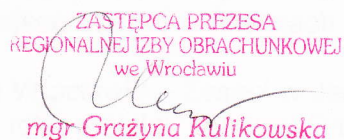 ZASTĘPCA PREZESA
REGIONALNEJ IZBY OBRACHUNKOWEJ
we Wrocławiu
mgr Grażyna Kulikowska